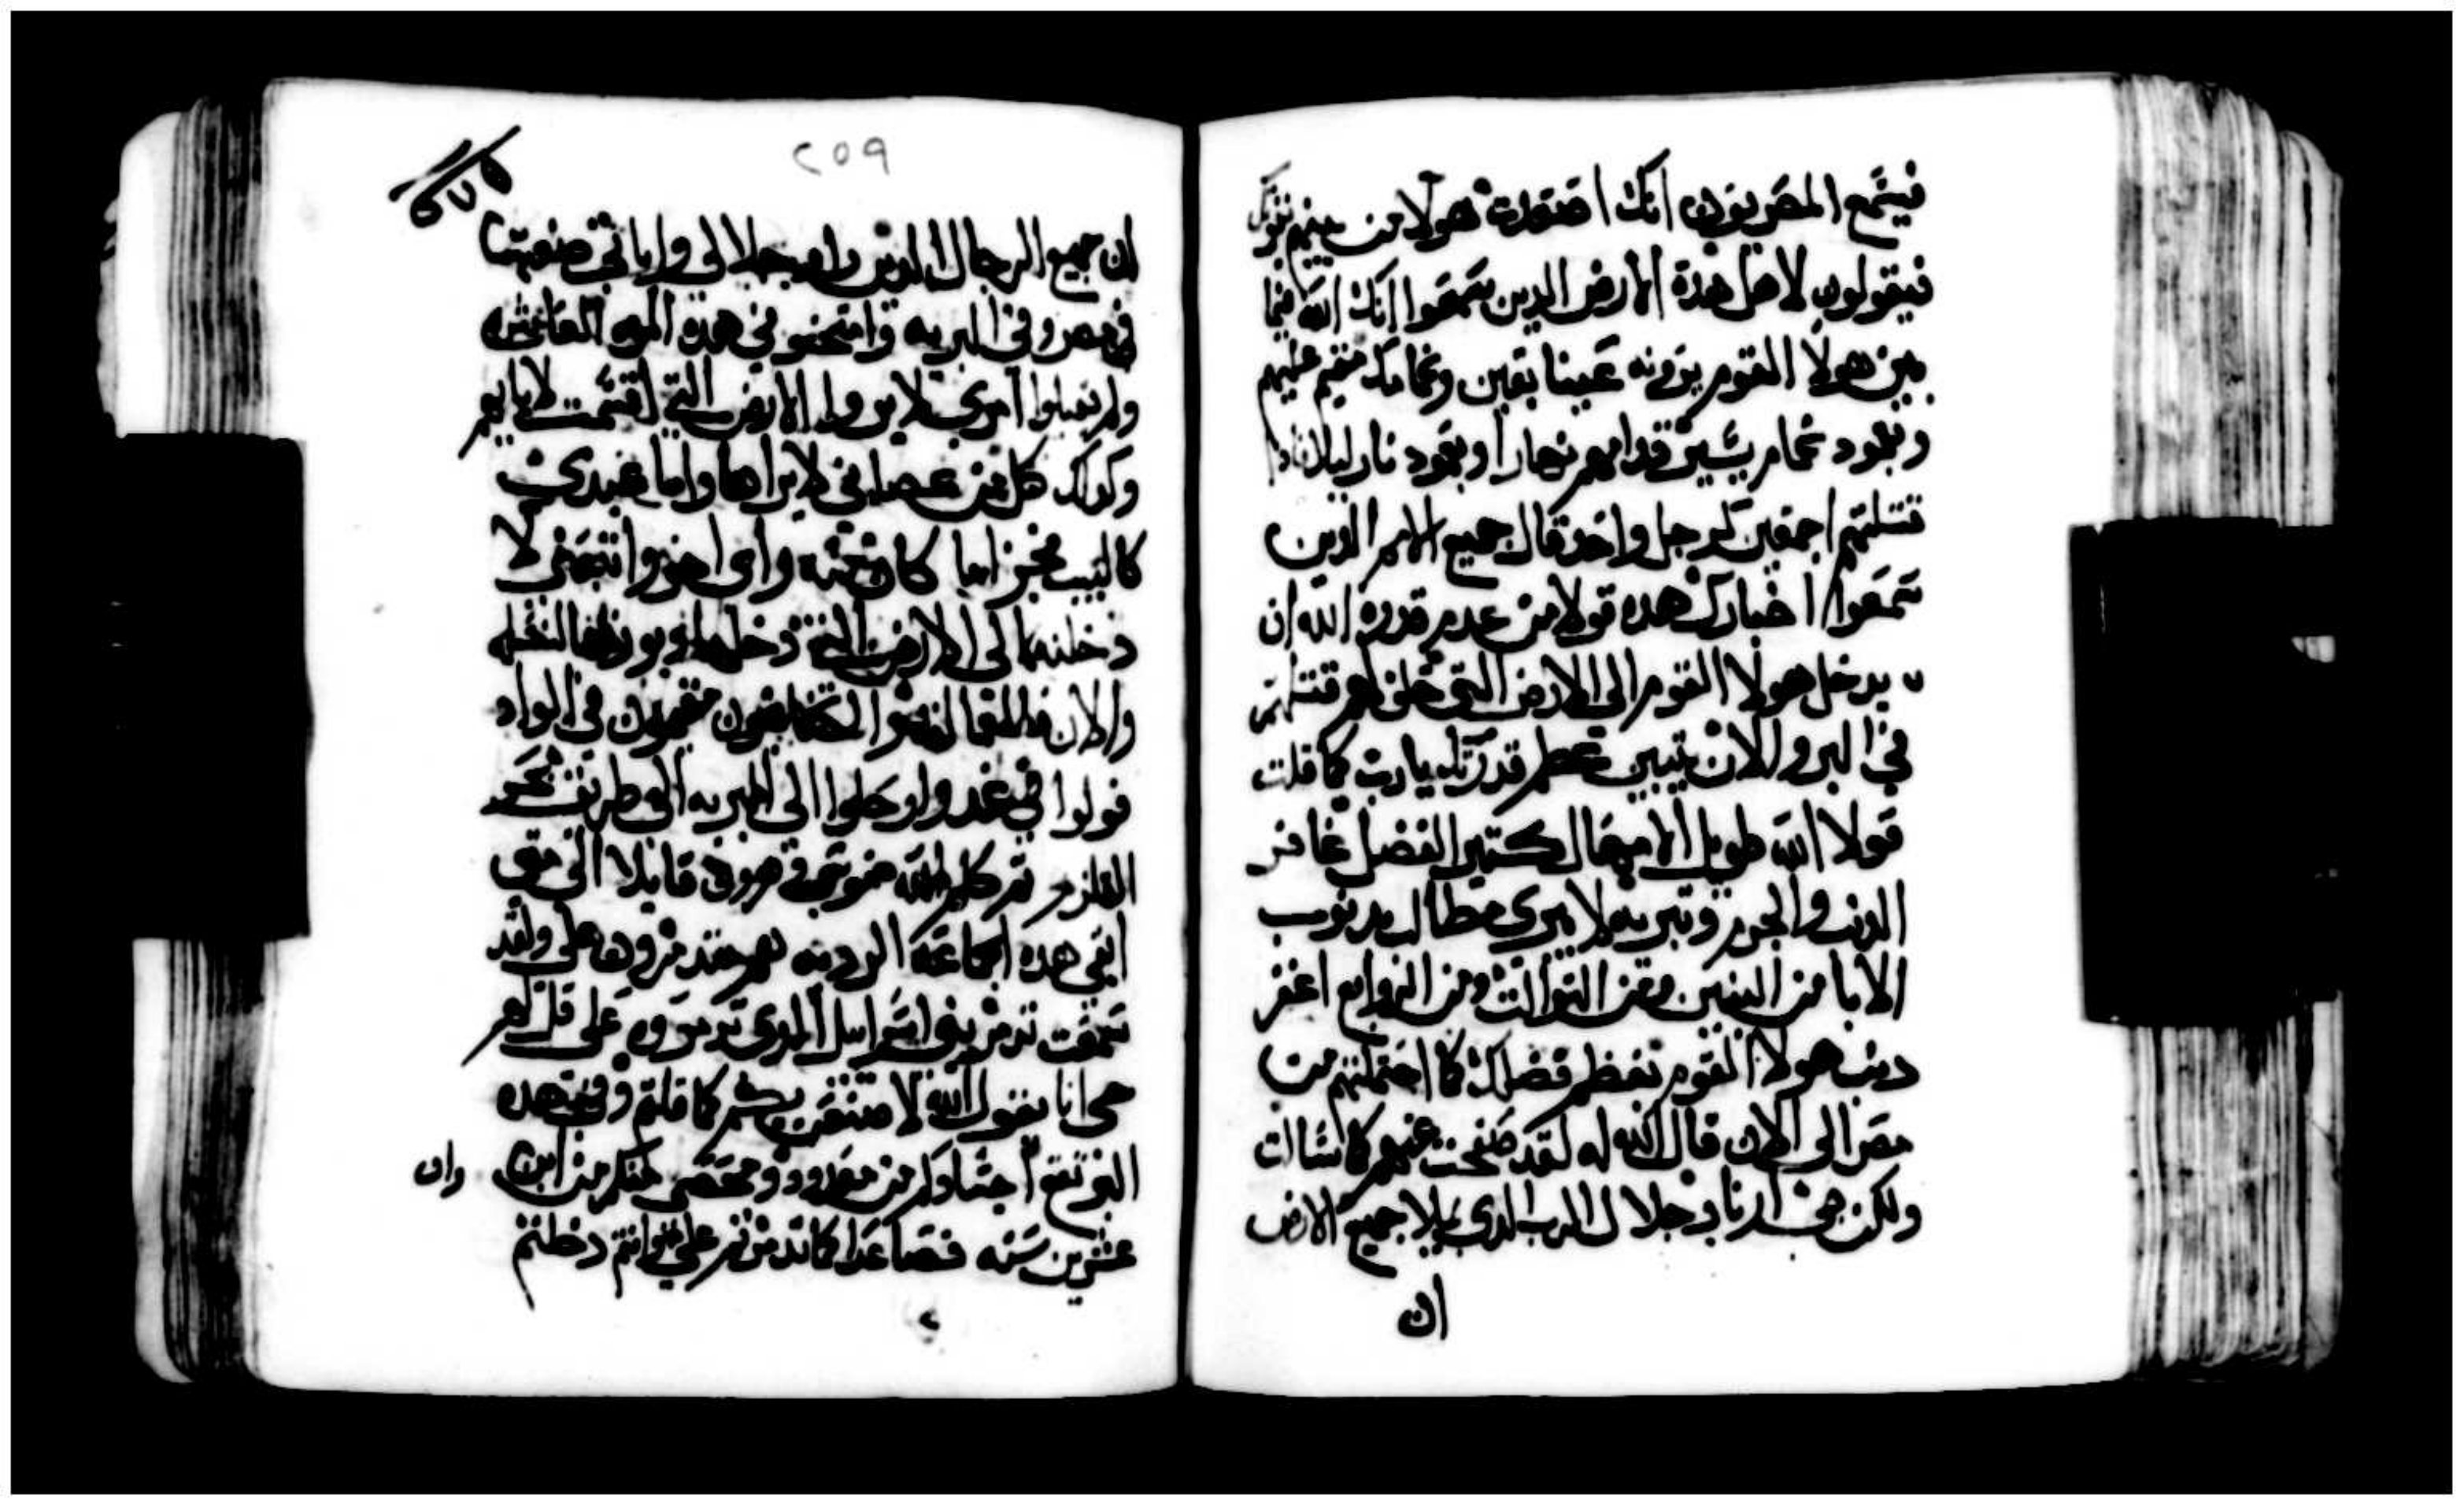 فيسمع المصريون انك اصعدت هولا من بينهم بقوتك
فيقولون لاهل هذة الارض الدين سمعوا انك الله فيما
بين هولا القوم يرونه عينا بعين وغمامك مقيم عليهم
وبعمود غمام يسير قدامهم نهارا وبعمود نار ليلا فادا
قتلتهم اجمعين كرجل واحد قال جميع الامم الدين
سمعوا اخبارك هده قولا من عدم قدرة الله ان
يدخل هولا القوم الى الارض التى حلف لهم قتلهم
في البر والان يتبين عظم قدرتك يارب كما قلت
قولا الله طويل الامهال كتير الفضل غافر
الدنب والجرم وتبريه لا يبرى مطالب بدنوب
الابا من البنين ومن التوالت ومن الروابع اغفر
دنب هولا القوم بعظم فضلك كما احتملتهم من
مصر الى الان قال الله له لقد صفحت عنهم كما سالت
ولكن حى انا وجلال الرب الدى يملا جميع الارض
ان
٢٥٩
ان جميع الرجال الدين راو جلالى واياتى صنعتها
فى مصر وفى البريه وامتحنو في هده المره العاشره
ولم يقبلوا امرى لا يروا الارض التى اقسمت لابايهم
وكدلك كل من عصانى لا يراها واما عبدى
كاليب جزا ما كان معه راى اخر واتبعنى لا
دخلنه الى الارض التى دخلها ويورثها لنسله
والان العمالقه والكنعانيون مقيمون في الواد
فولوا في غد وارحلوا الى البريه الى طريق بحر
القلزم تم كلم الله موسى وهرون قايلا الى متى
ابقى هده الجماعه الرديه هم متدمرون على ولقد
سمعت تدمر بنى اسراييل الدى تدمروه على قل لهم
حى انا يقول الله لا صنعن بكم كما قلتم وفى هده
البر تقع اجسادكم من معدود ومحصى منكم من ابن وان
عشرين سنه فصاعدا كما تدمرتم على وانتم دخلتم